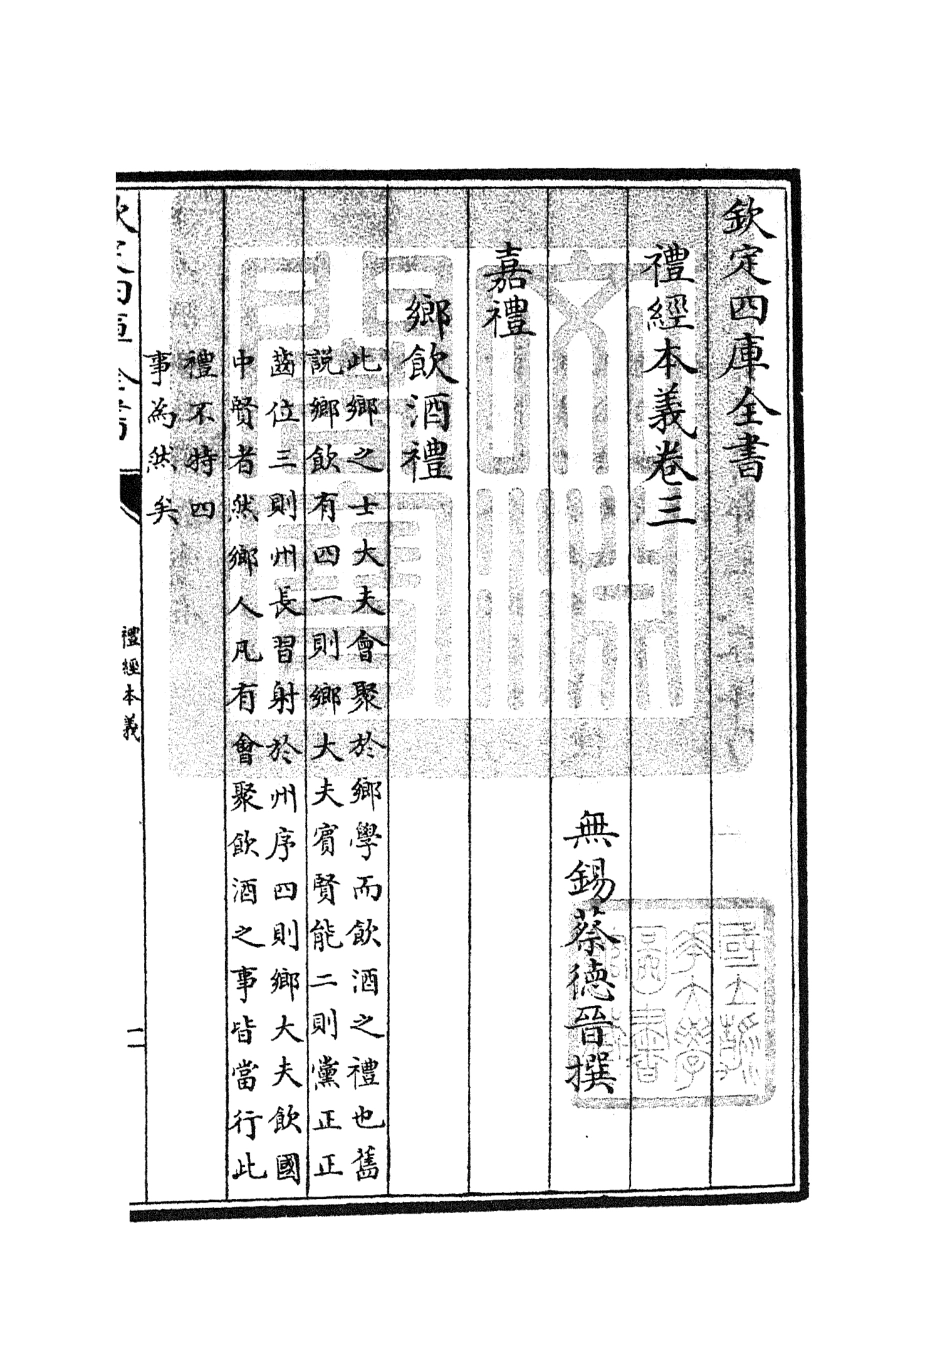 欽定四庫全書
禮經本義卷三
無錫蔡德晉撰
嘉禮
鄉飲酒禮
此鄉之士大夫會聚於鄉學而飲酒之禮也舊
説鄉飲有四一則鄉大夫賓賢能二則黨正正
齒位三則州長習射於州序四則鄉大夫飲國
中賢者然鄉人凡有會聚飲酒之事皆當行此
禮不特四
事為然矣
禮經本義
一